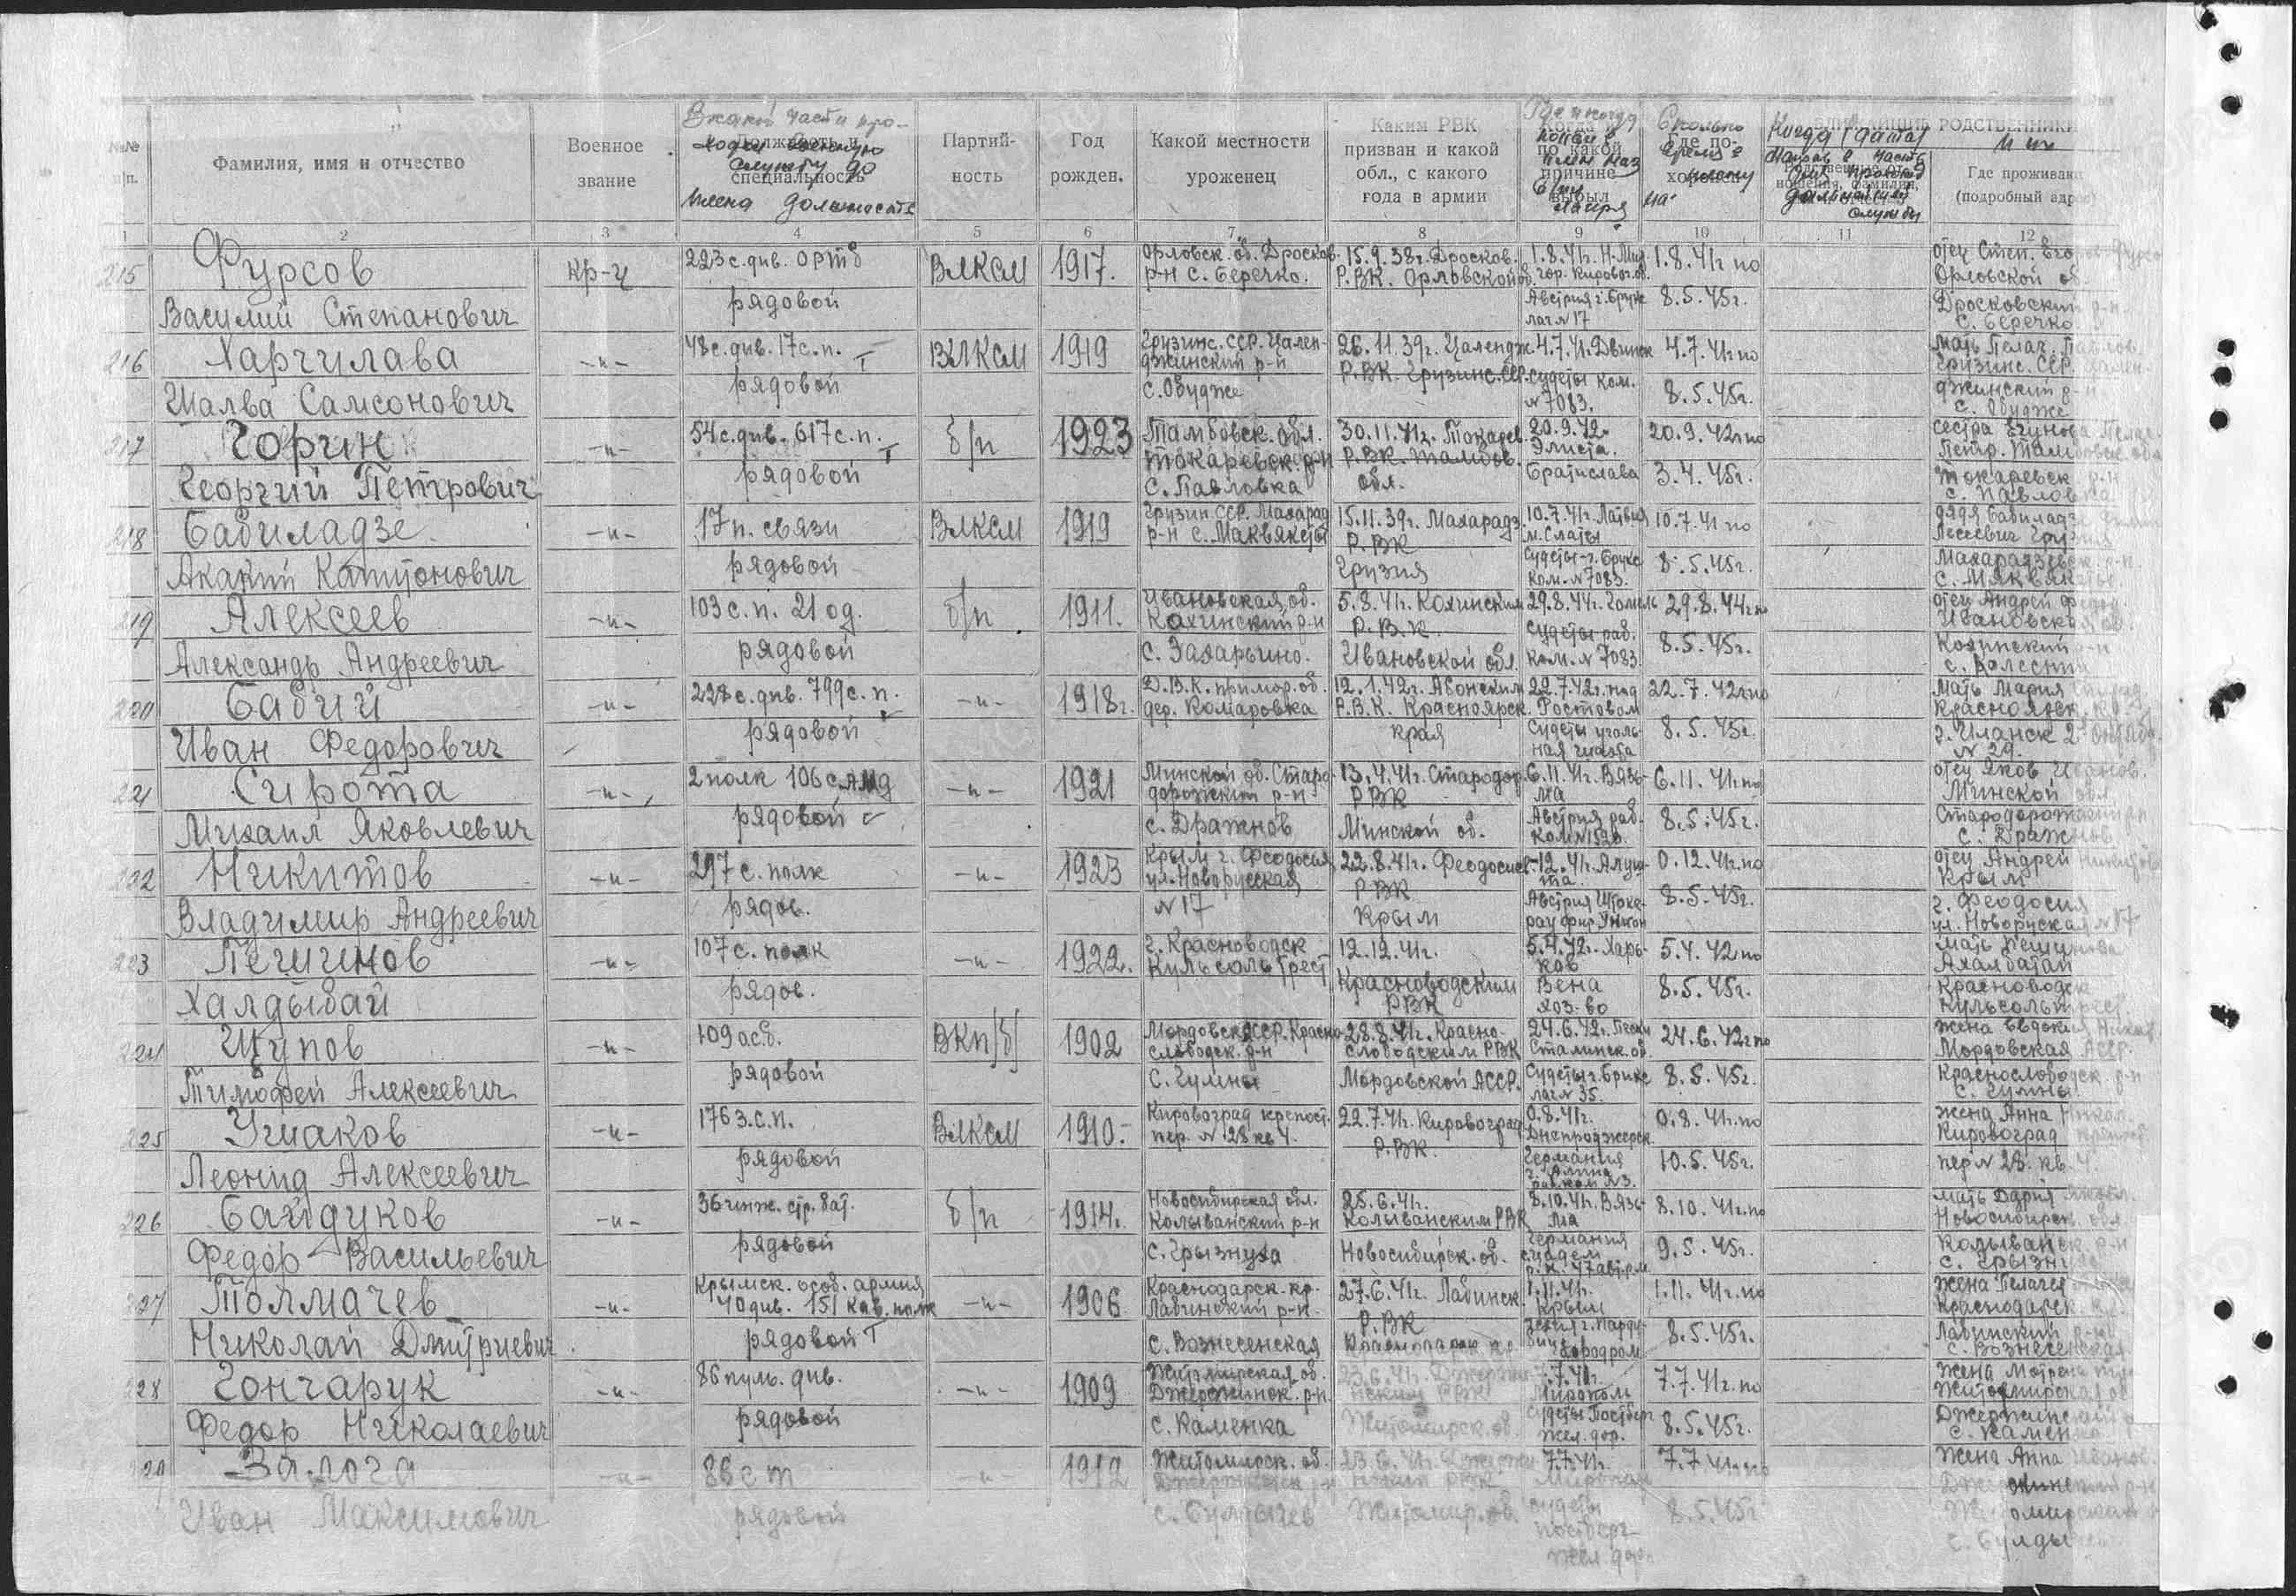 №№ п/п.
Фамилия, имя и отчество
Военное звание
В какой части про-
ходил военную
службу до
плена должность
Партий-
ность
Год
рожден.
Какой местности
уроженец
Каким РВК
призван и какой
обл., с какого
года в армии
Где и когда
попал в
плен наз
Сколько
время в
плену
Когда (дата)
БЛИЖАЙШИЕ РОДСТВЕННИКИ
Где прожива
(подробный адрес
1 2 3 4 5 6 7 8 9 10 11 12
215 Фурсов
Василий Степанович
кр-ц
223 с. див. ортб
рядовой
ВЛКСМ
1917.
Орловск. об. Дросков.
р-н с. Беречко.
15.9.38г. Дросков.
Р.ВК. Орловской об.
1.8.41г.
гор. Кировог. об.
Австрия г. Брукс
лаг N 17
1.8.41г по
8.5.45г.
отец Степ. Его
Орловской об.
Дросковский р-н
с. Беречко
216 Харчилава
Шалва Самсонович
-и-
48 с. див. 17 с.п.
рядовой
ВЛКСМ
1919
Грузинс. ССР. Цален-
джинский р-н
с. Обудже
26.11.39г. Цалендж.
Р.ВК. Грузинс. ССР.
4.7.41. Двинск
Судеты ком.
N 7083.
4.7.41г по
8.5.45г.
мать Пелаг. Павлов.
Грузинс. ССР. Цален-
джинский р-н
с. Обудже
217 Горчин
Георгий Петрович
-и-
54 с. див. 617 с.п.
рядовой
б/п
1923
Тамбовск. обл.
Токаревск. р-н
с. Павловка
30.11.41г. Токарев.
Р.ВК. Тамбов.
обл.
20.9.42г.
Элиста.
Братислава
20.9.42г по
3.4.45г.
сестра
Петр. Тамбовск. об.
Токаревск р-н
с. Павловка
218 Бабиладзе
Акакий
-и-
17 п. связи
рядовой
ВЛКСМ
1919
Грузин. ССР. Махарад
р-н с.
15.11.39г. Махарадз.
Р.ВК
Грузия
10.7.41г. Латвия
м. Слаты
Судеты-г. Брукс
ком. N 7083.
10.7.41 по
8.5.45г.
дядя Бабиладзе
Махарадзевск р-н.
219 Алексеев
Александр Андреевич
-и-
103 с.п. 21 од.
рядовой
б/п
1911.
Ивановская об.
Кохинский р-н
с. Захарьино.
5.8.41г. Кохинским
Р.В.К.
Ивановской обл.
29.8.44г. Гомель
Судеты раб.
ком. N 7083
29.8.44г по
8.5.45г.
отец Андрей Федор.
Ивановская об.
Кохинский р-н
220 Бабий
Иван Федорович
-и-
228 с. див. 799 с.п.
рядовой
-и-
1918г.
Д.В.К. примор. об.
дер. Комаровка
12.1.42г.
Р.В.К. Красноярск.
края
22.7.42г. под
Ростовом
Судеты уголь-
ная шахта
22.7.42г по
8.5.45г.
мать Мария
Красноярск. кр.
г. Иланск 2я
N 29.
221 Сирота
Михаил Яковлевич
-и-
2 полк 106 с.
рядовой
-и-
1921
Минской об. Старо-
дорожский р-н
с. Дражнов
13.4.41г. Стародор.
РВК
Минской об.
6.11.41г. Вязь-
ма
Австрия раб.
ком N 1520.
6.11.41г по
8.5.45г.
отец Яков Иванов.
Минской обл
Стародорожский р-н
с. Дражнов
222 Никитов
Владимир Андреевич
-и-
297 с. полк
рядов.
-и-
1923
Крым г. Феодосия
ул. Новорусская
N 17
22.8.41г. Феодосиев-
РВК
Крым
-12.41г. Алуш-
та.
Австрия Штоке-
рау
0.12.41г. по
8.5.45г.
отец Андрей Никитов
Крым
г. Феодосия
ул. Новоруская N 17
223 Печигинов
Халдыбай
-и-
107 с. полк
рядов.
-и-
1922.
г. Красноводск
Кульсольтрест
12.12.41г.
Красноводским
РВК
5.4.42г. Харь-
ков
Вена
хоз-во
5.4.42г по
8.5.45г.
мать
Красноводск
Кульсольтрест
224 Щупов
Тимофей Алексеевич
-и-
109 о.с.б.
рядовой
ВКП/б/
1902
Мордовск. АССР. Красно-
слободск. р-н
с. Гумны
28.8.41г. Красно-
слободским РВК
Мордовской АССР.
24.6.42г. Пески
Сталинск. об.
Судеты г. Брикс
лаг N 35.
24.6.42г по
8.5.45г.
жена Евдокия
Мордовская АССР.
Краснослободск. р-н
с. Гумны
225 Ушаков
Леонид Алексеевич
-и-
176 з.с.п.
рядовой
ВЛКСМ
1910.
Кировоград крепост.
пер. N 28 кв 4.
22.7.41г. Кировоград.
Р.ВК.
0.8.41г.
Днепроджерж.
Германия
0.8.41г. по
10.5.45г.
жена Анна Никол.
Кировоград крепост.
пер N 28. кв. 4.
226 Байдуков
Федор Васильевич
-и-
36 инж. стр. бат.
рядовой
б/п
1914г.
Новосибирская обл.
Колыванский р-н
с. Грызнуха
25.6.41г.
Колыванским РВК
Новосибирск. об.
8.10.41г. Вязь-
ма
Германия
8.10.41г. по
9.5.45г.
мать Дария Яковл.
Новосибирск. обл.
Колыванск. р-н
с. Грызн
227 Толмачев
Николай Дмитриевич
-и-
Крымск. особ. армия
40 див. 151 кав. полк
рядовой
-и-
1906
Краснодарск. кр.
Лабинский р-н.
с. Вознесенская
27.6.41г. Лабинск.
Р.ВК
Краснодарск кр.
1.11.41г.
Крым
Чехия г. Парду-
бицы аэродром
1.11.41г. по
8.5.45г.
жена Пелагея
Краснодарск. кр.
Лабинский р-н
с. Вознесенская
228 Гончарук
Федор Николаевич
-и-
86 пуль. див.
рядовой
-и-
1909
Житомирская об.
Джержинск. р-н.
с. Каменка
23.6.41г. Джержи-
нским РВК
Житомирск. об.
7.7.41г.
Мирополь
Судеты Постберг
жел. дор.
7.7.41г. по
8.5.45г.
жена Мотрена
Житомирская об.
Джержинский р
с. Каменка
229 Залога
Иван Максимович
-и-
86 с п
рядовой
-и-
1912
Житомирск. об.
Джержинск р-н
с. Булдычев
23.6.41г. Джержи-
нским РВК
Житомир. об.
7.7.41г.
Мирополь
Судеты
постберг
жел дор
7.7.41г по
8.5.45г
жена Анна Иванов.
Джержинский р-н
Житомирская о
с. Булды